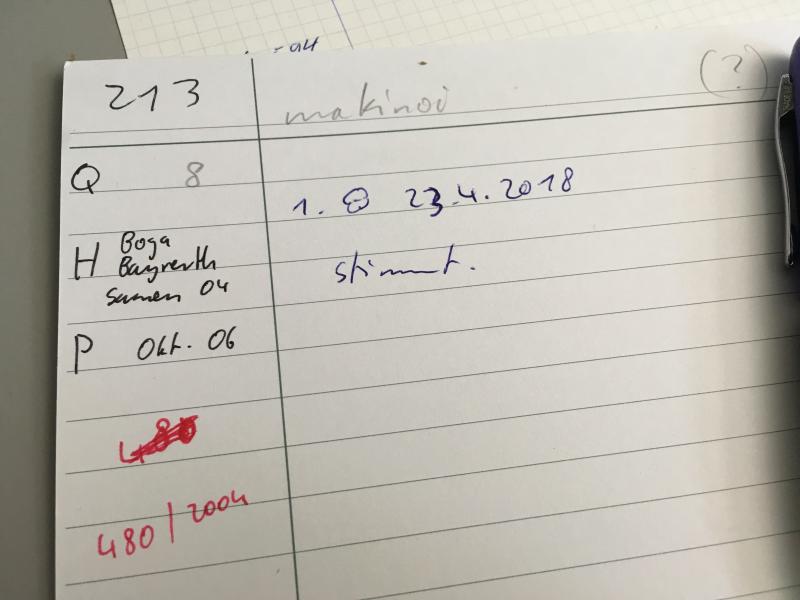 -04
213 makinoi (?)
Q 8
1. 23.4.2018
H Boga
Bayreuth
Samen 04
stimmt.
P Okt. 06
480
480/2004